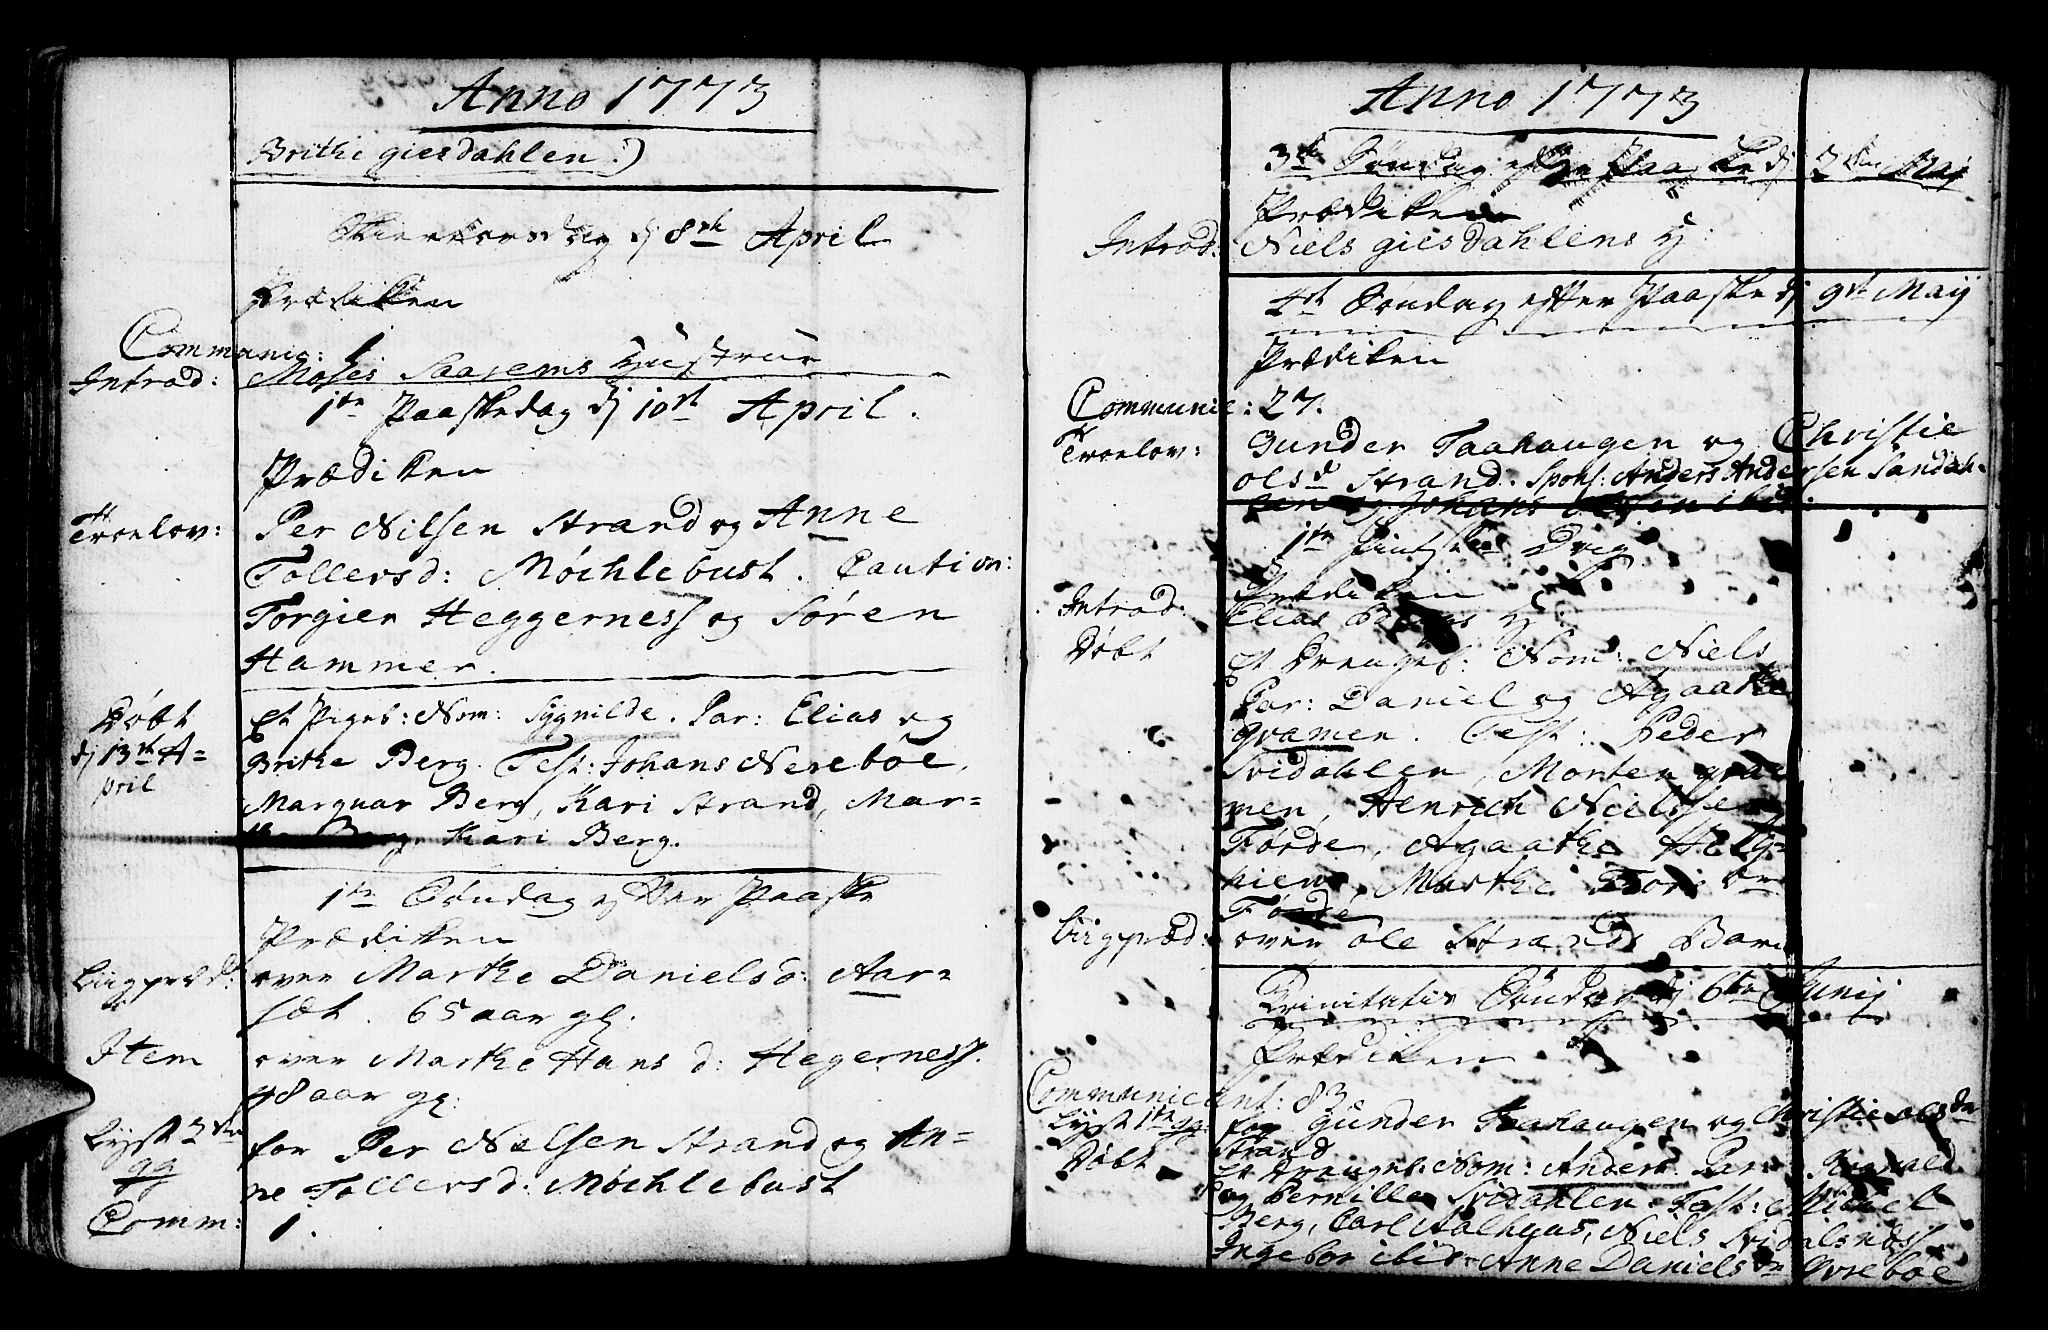 Anno 1773
Brithe giesdahlen:)
Skiertorsdag dj 8de April
Prædiken
Communic: 1
Introd: Moses Saarems Hustrue
1te Paaskedag dj 10de April.
Prædiken
Troelov: Per Nilsen Strand og Anne
Tollersd: Møchlebust. Caution:
Torgier Heggerness og Søren
Hammer.
Døbt Et Pigeb: Nom: Sygnilde. Par: Elias og
dj 13de A= Brithe Berg. Test: Johans Nesebøe,
pril Marquar Berg, Kari Strand, Mar=
the Berg, Kari Berg.
1te Søndag efter Paaske
Prædiken
Liigpræd: over Marthe Danielsd: Aar=
sæt. 65 aar gl:
Item over Marthe Hansd: Hegerness.
48 aar gl:
Lyst 2den for Per Nælsen Strand og An=
gg ne Tollersd: Møchlebust
Comm: 1.
Anno 1773
3de Søndag efter Paaske dj 2den Maj
Prædiken
Introd: Niels giesdahlens H:
4de Søndag efter Paaske dj 9de Maij
Prædiken
Communic: 27.
Troelov: Gunder Taahaugen og Christie
olsd Strand. Spons: Anders Andersen Sandah=
len og Johans olsen ibid:
1te Pintse Dag
Prædiken
Introd: Elias Bergs H:
Døbt et Drengeb: Nom: Niels
Par: Daniel og Agaathe
Gramen. Test: Peder
Svidahlen, Morten gra=
men, Henrich Nielssen
Førde, Agaathe Helg=
hiem, Marthe
Førde
Liigpræd: over ole Strands Barn
Trinitatis Søndag dj 6te Junij
Prædiken
Communicant: 83
Lyst 1te gg for Gunder Taahaugen og Christie olsda
Strand
Døbt Et Drengeb: Nom: Anders. Par: Rognald
og Pernille Svidahlen. Test: Michel
Berg, Carl Aalhuus, Niels Svidalsness
Ingebor ibid: Anne Daniels Dr Grsebøe